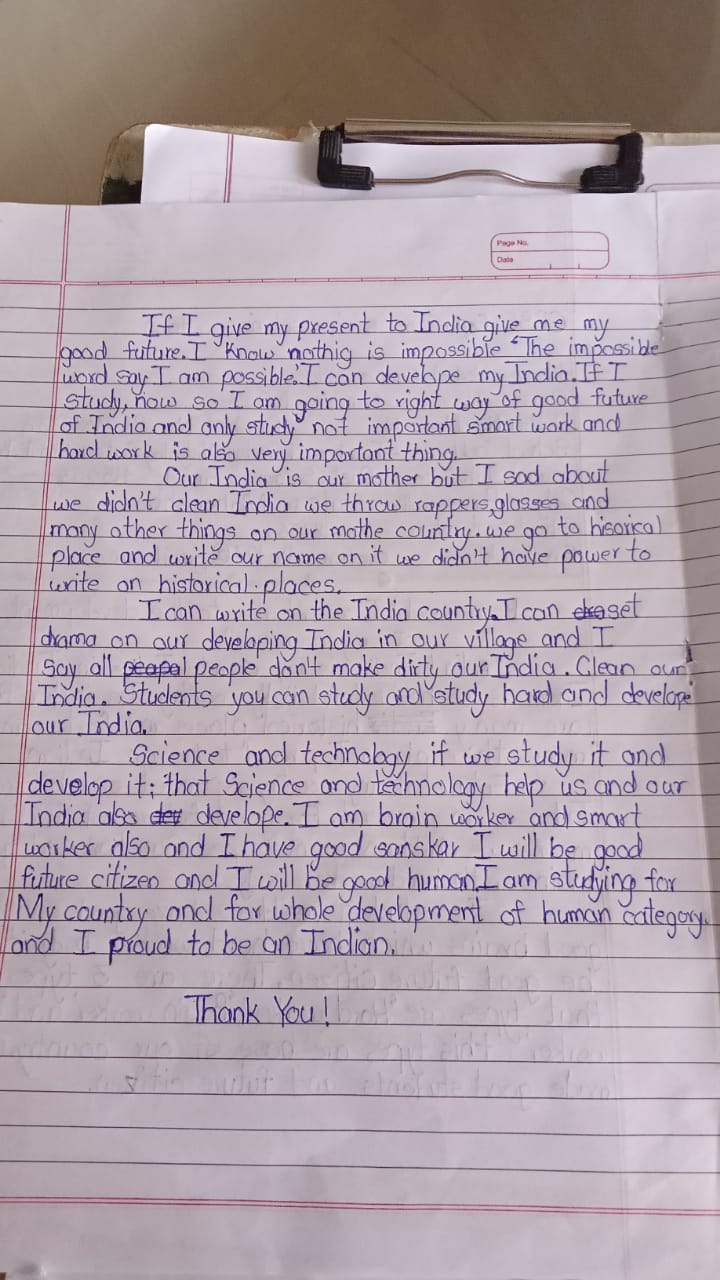 Page No.
Date
If I give my present to India give me my
good future. I Know nothig is impossible "The impossible
word say I am possible.' I can develope my India. If I
study, now so I am going to right way of good future
of India and only study not important smart work and
hard work is also very important thing.
Our India is our mother but I sad about
we didn't clean India we throw rappers, glasses and
many other things on our mothe country. we go to hisorical
place and write our name on it we didn't have power to
write on historical places.
I can write on the India country. I can set
drama on our developing India in our village and I
Say all people don't make dirty our India. Clean our
India. Students you can study and study hard and develope
our India.
Science and technology if we study it and
develop it; that Science and technology help us and our
India also develope. I am brain worker and smart
worker also and I have good sanskar I will be good
future citizen and I will be good human. I am studying for
My country and for whole development of human category.
and I proud to be an Indian.
Thank You!